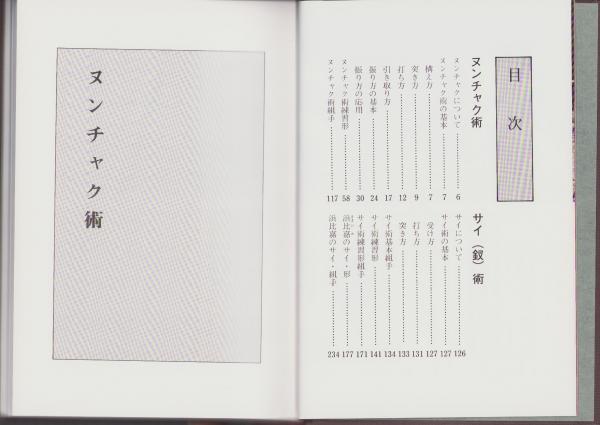 目次
ヌンチャク術
ヌンチャクについて……………6
ヌンチャク術の基本……………7
構え方……………7
突き方……………9
打ち方……………12
引き取り方……………17
振り方の基本……………24
振り方の応用……………30
ヌンチャク術練習形……………58
ヌンチャク術組手……………117
サイ（釵）術
サイについて……………126
サイ術の基本……………127
受け方……………127
打ち方……………131
突き方……………133
サイ術基本組手……………134
サイ術練習形……………141
サイ術練習形組手……………171
浜比嘉のサイ・形……………177
浜比嘉のサイ・組手……………234
ヌンチャク術